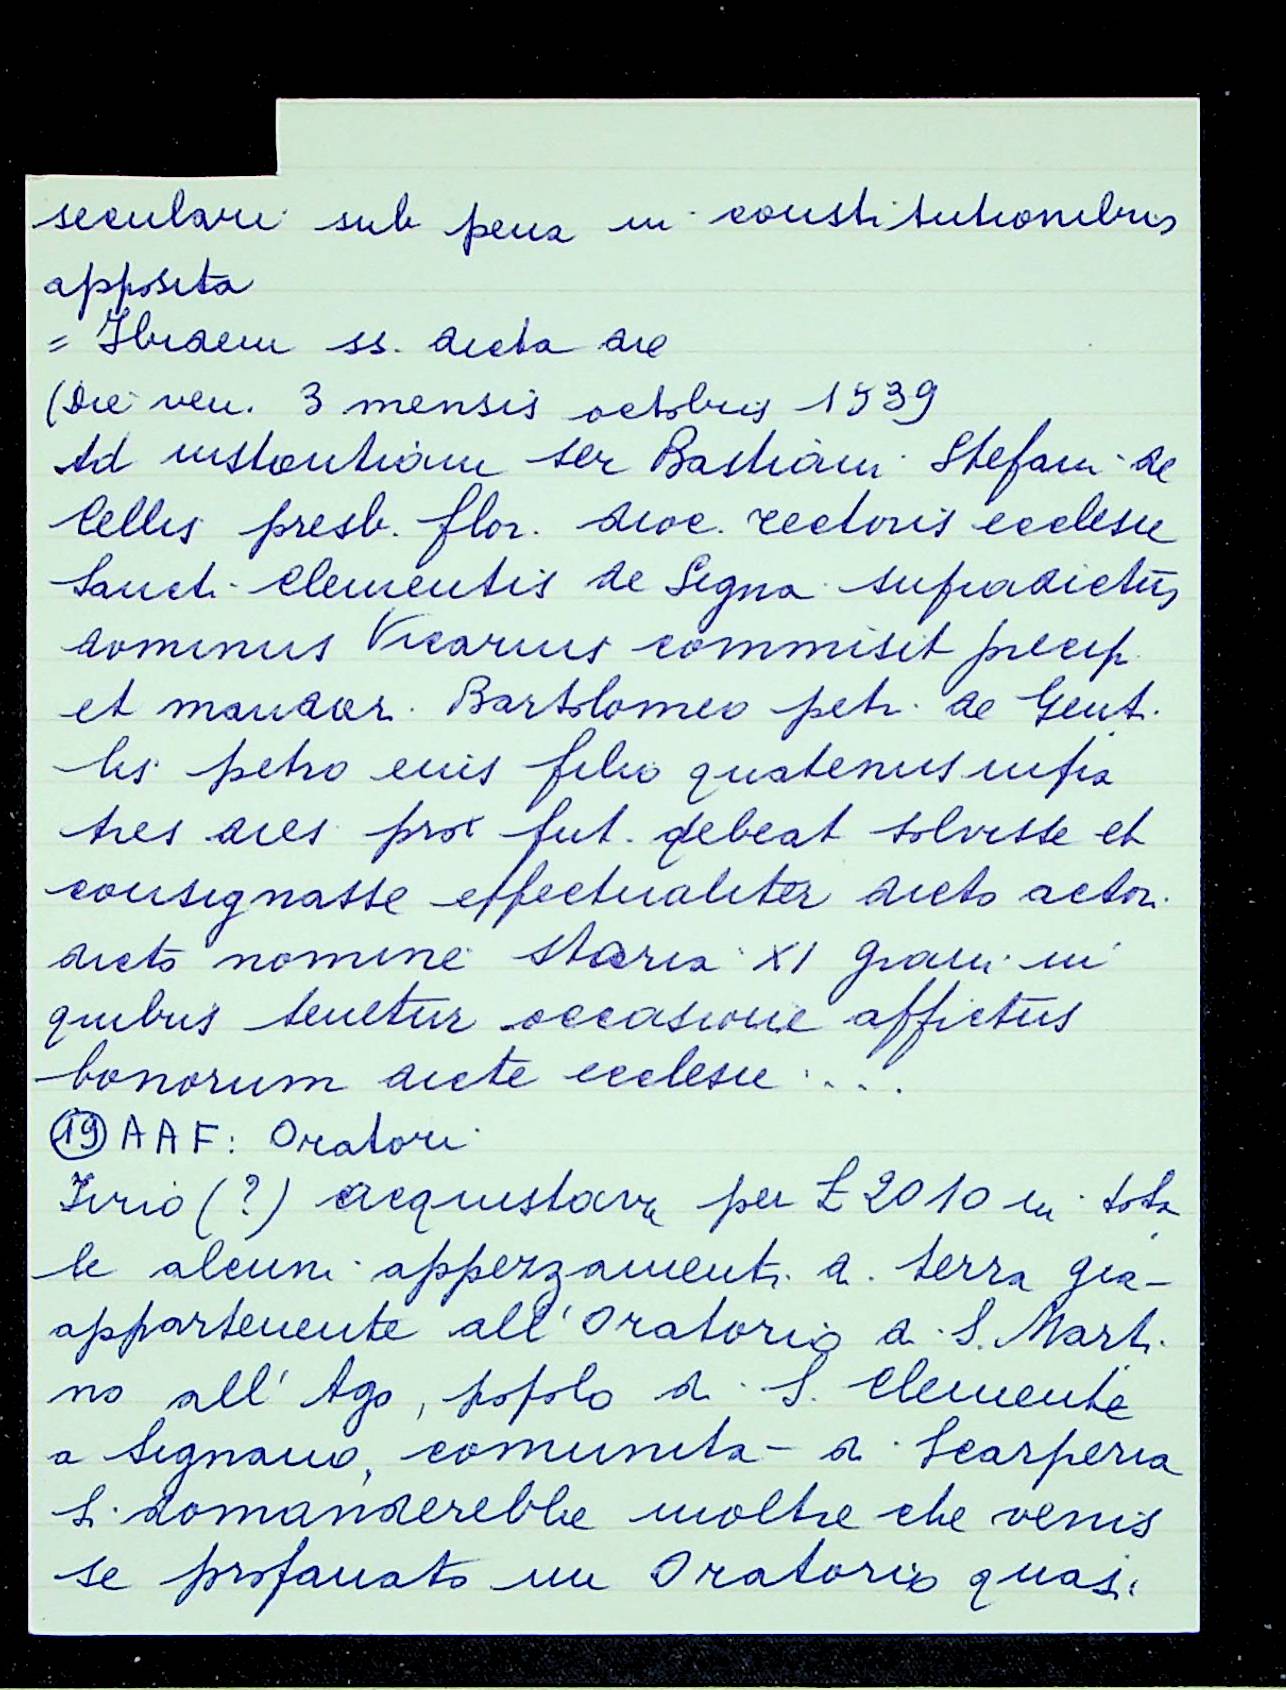 seculari sub pena in constitutionibus
apposita
= Ibidem ss. dicta die
(Die ven. 3 mensis octobris 1539
Ad instantiam ser Bastiani Stefani de
Cellis presb. flor. dioc. rectoris ecclesie
Sancti Clementis de Signa supradictus
dominus Vicarius commisit precip.
et mandar. Bartolomeo petri de Genti
lis petro eius filio quatenus infra
tres dies prox fut. debeat solvisse et
consignasse effectualiter dicto actori
dicto nomine staria XI grani in
quibus tenetur occasione affictus
bonorum dicte ecclesie ....
(19) AAF: Oratori
(?) acquistava per £ 2010 in tota
le alcuni appezzamenti di terra già
appartenente all'Oratorio di S. Marti
no all'Ago, popolo di S. Clemente
a Signano, comunità di Scarperia
Si domanderebbe inoltre che venis
se profanato un Oratorio quasi